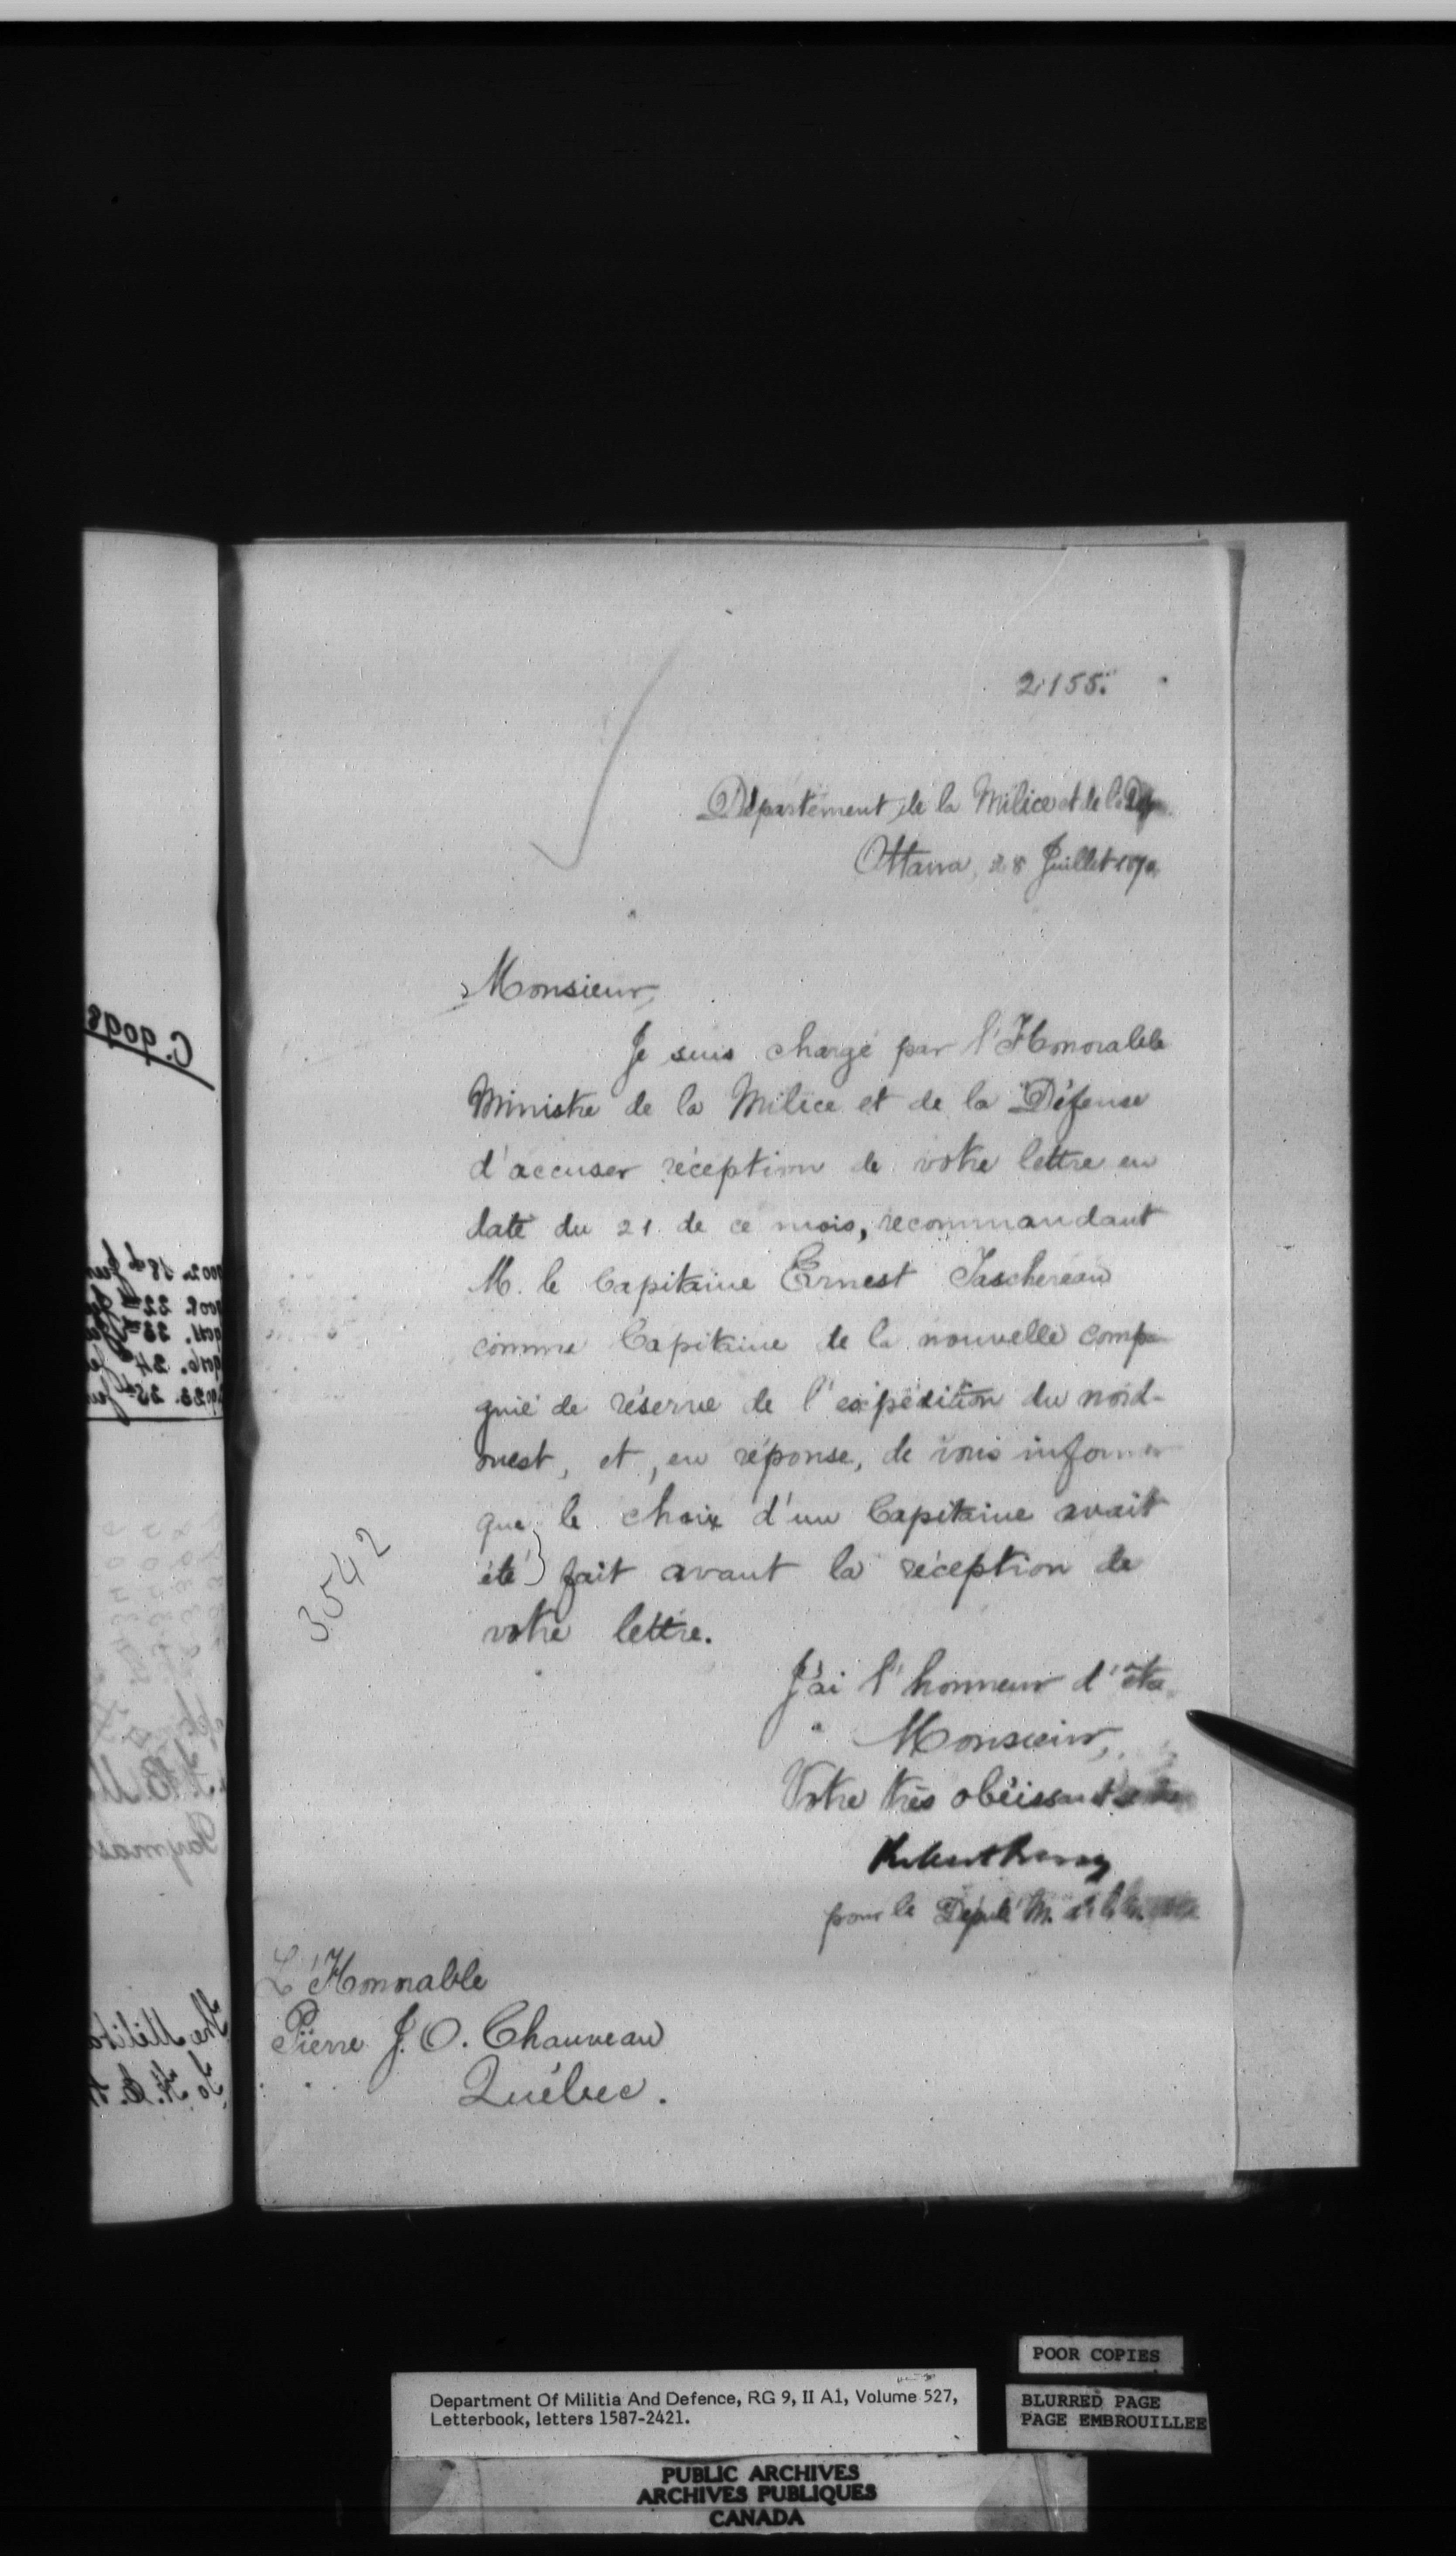 2155.
Département de la Milice et de la
Ottawa, 28 Juillet 1870
Monsieur,
Je suis chargé par l'Honorable
Ministre de la Milice et de la Défense
d'accuser réception de votre lettre en
date du 21 de ce mois, recommandant
M. le Capitaine Ernest Taschereau
comme Capitaine de la nouvelle compa
gnie de réserve de l'expédition du nord-
ouest, et, en réponse, de vous informer
que le choix d'un Capitaine avait
été fait avant la réception de
votre lettre.
3542
J'ai l'honneur d'être
Monsieur,
Votre très obéissant
pour le Député M.
L'Honorable
Pierre J. O. Chauveau
Québec.
POOR COPIES
BLURRED PAGE
PAGE EMBROUILLEE
Department Of Militia And Defence, RG 9, II A1, Volume 527,
Letterbook, letters 1587-2421.
PUBLIC ARCHIVES
ARCHIVES PUBLIQUES
CANADA